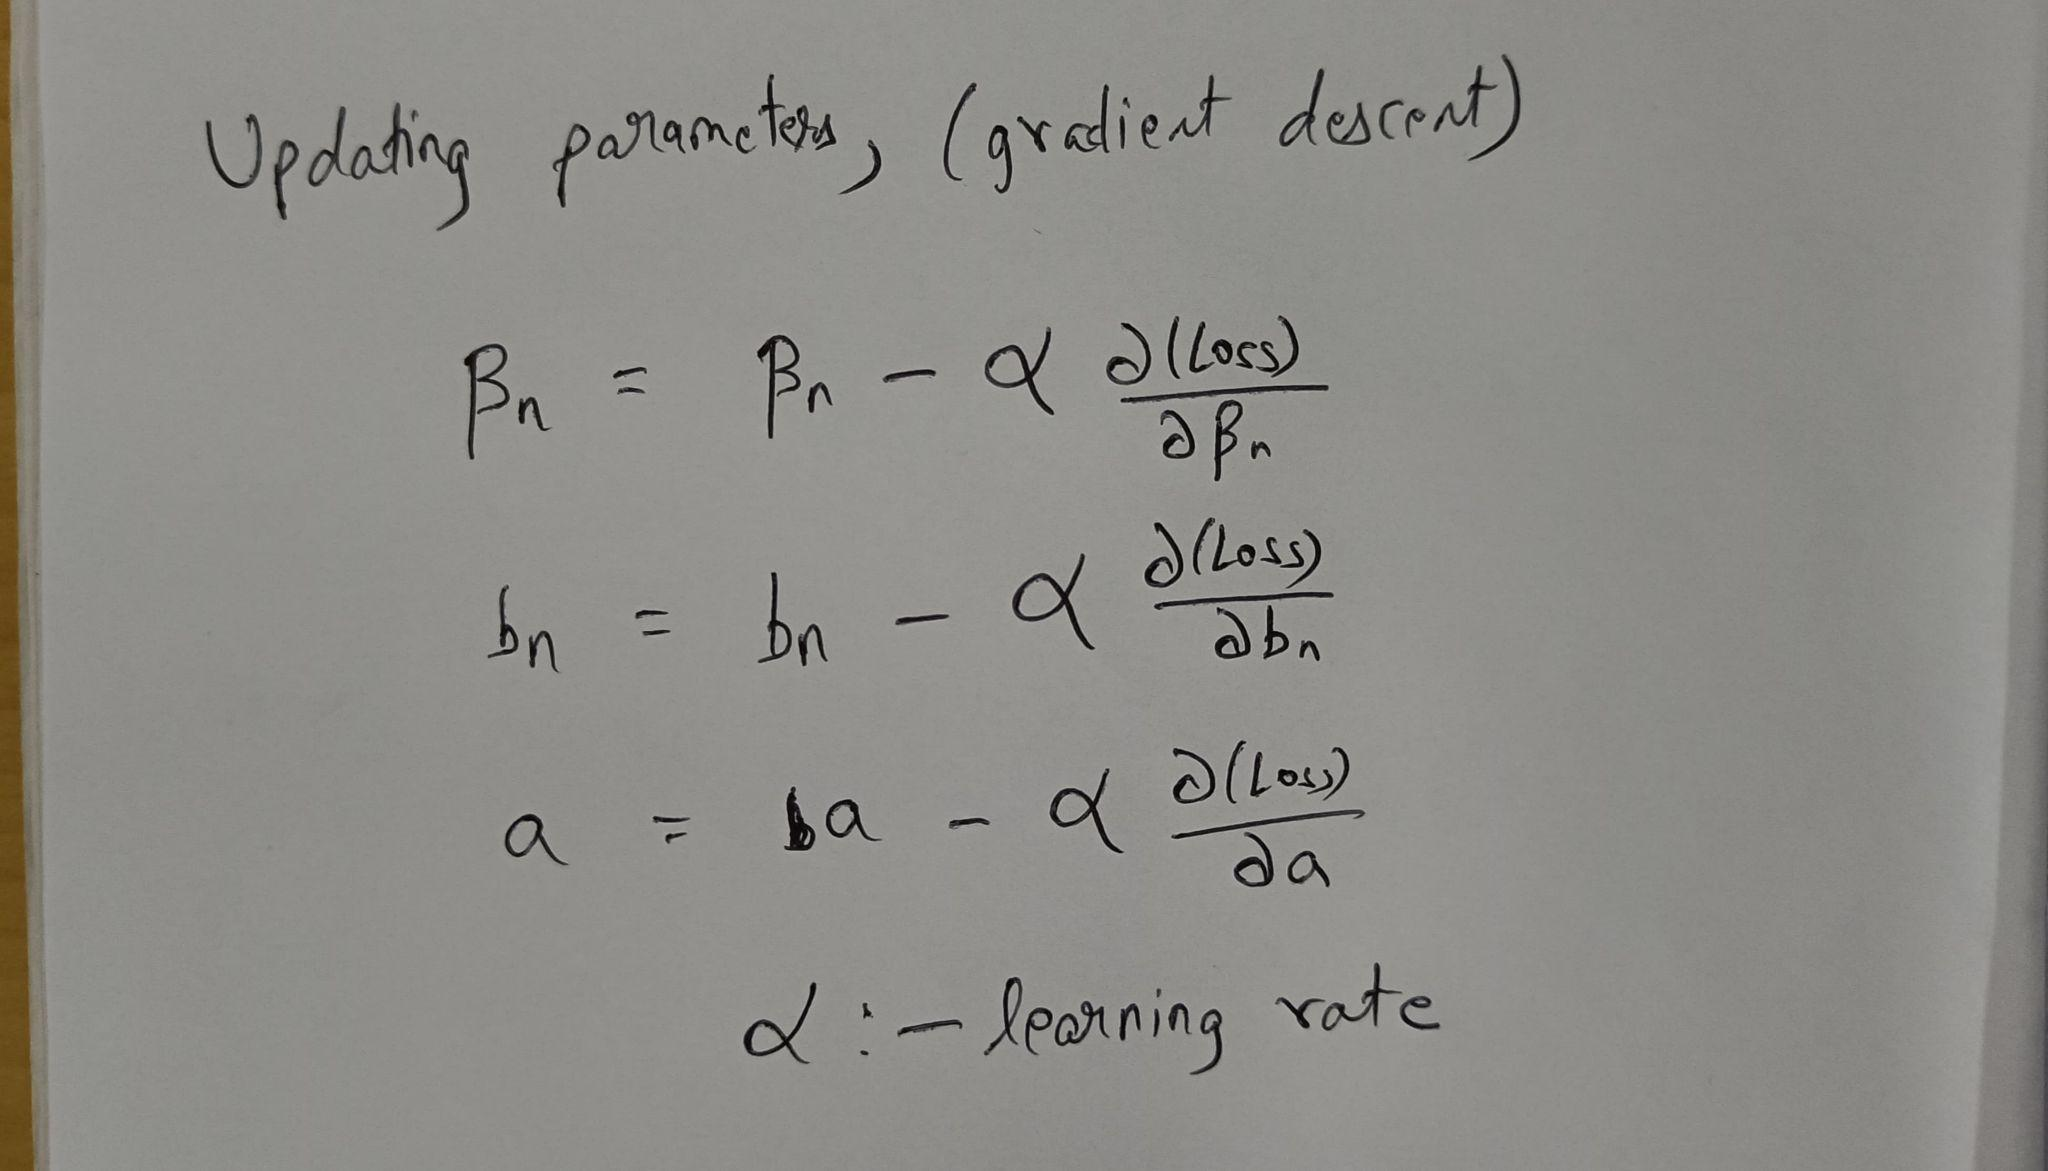 Updating parameters, (gradient descent)
βn = βn - α ∂(Loss)/∂βn
bn = bn - α ∂(Loss)/∂bn
a = a - α ∂(Loss)/∂a
α :- learning rate